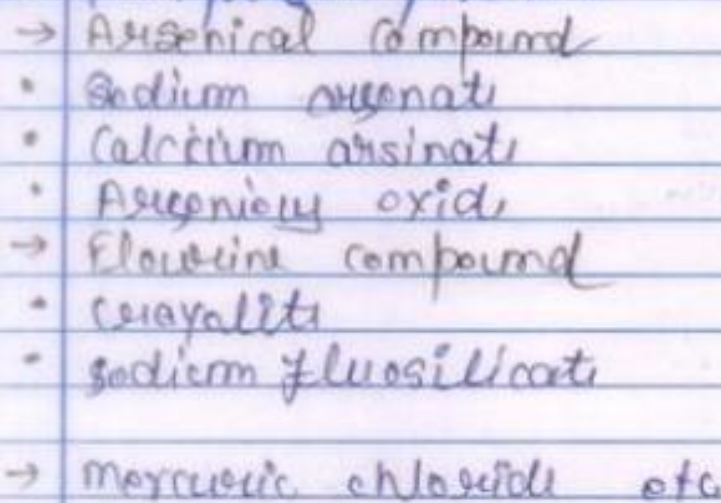 → Arsenical Compound
• Sodium arsenate
• Calcium arsinate
• Arsenious oxide
→ Flourine compound
• Cerayalite
• Sodium fluosilicate
→ Mercuric chloride etc